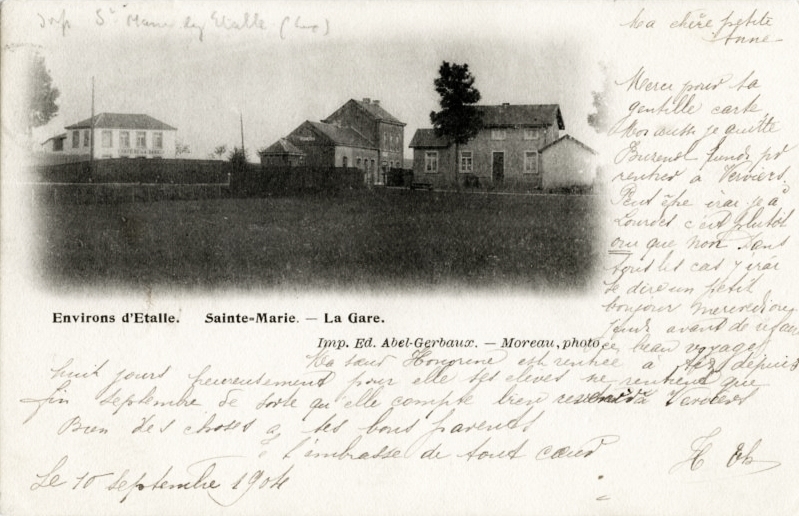 Ma chère petite
Anne-
Merci pour ta
gentille carte
Moi aussi je quitte
lundi pr
rentrer à Verviers.
Peut être irai-je à
Lourdes c'est plutôt
oui que non. Dans
tous les cas j'irai
te dire un petit
bonjour
avant de
ce beau voyage
Environs d'Etalle. Sainte-Marie. — La Gare.
Imp. Ed. Abel-Gerbaux. — Moreau, photo
Ma sœur est rentrée à depuis
huit jours heureusement pour elle ses élèves ne rentrent que
fin septembre de sorte qu'elle compte bien à Verviers
Bien des choses à tes bons parents
Je t'embrasse de tout cœur
Le 10 septembre 1904